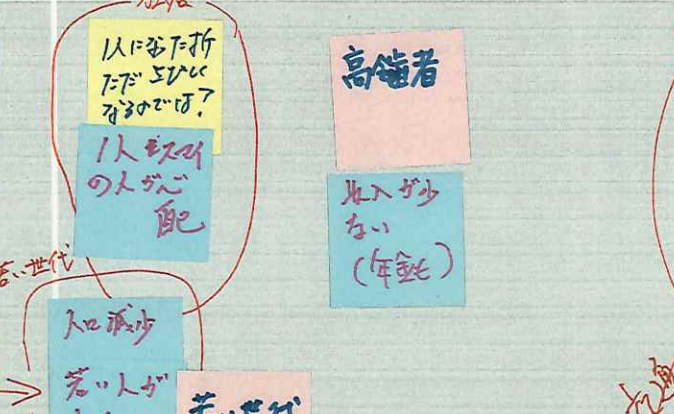 1人になった折
ただ さびしく
なるのでは?
1人ずスマイ
の人が心
配
高齢者
収入が少
ない
(年金も)
若い世代
人口減少
若い人が
若い世代